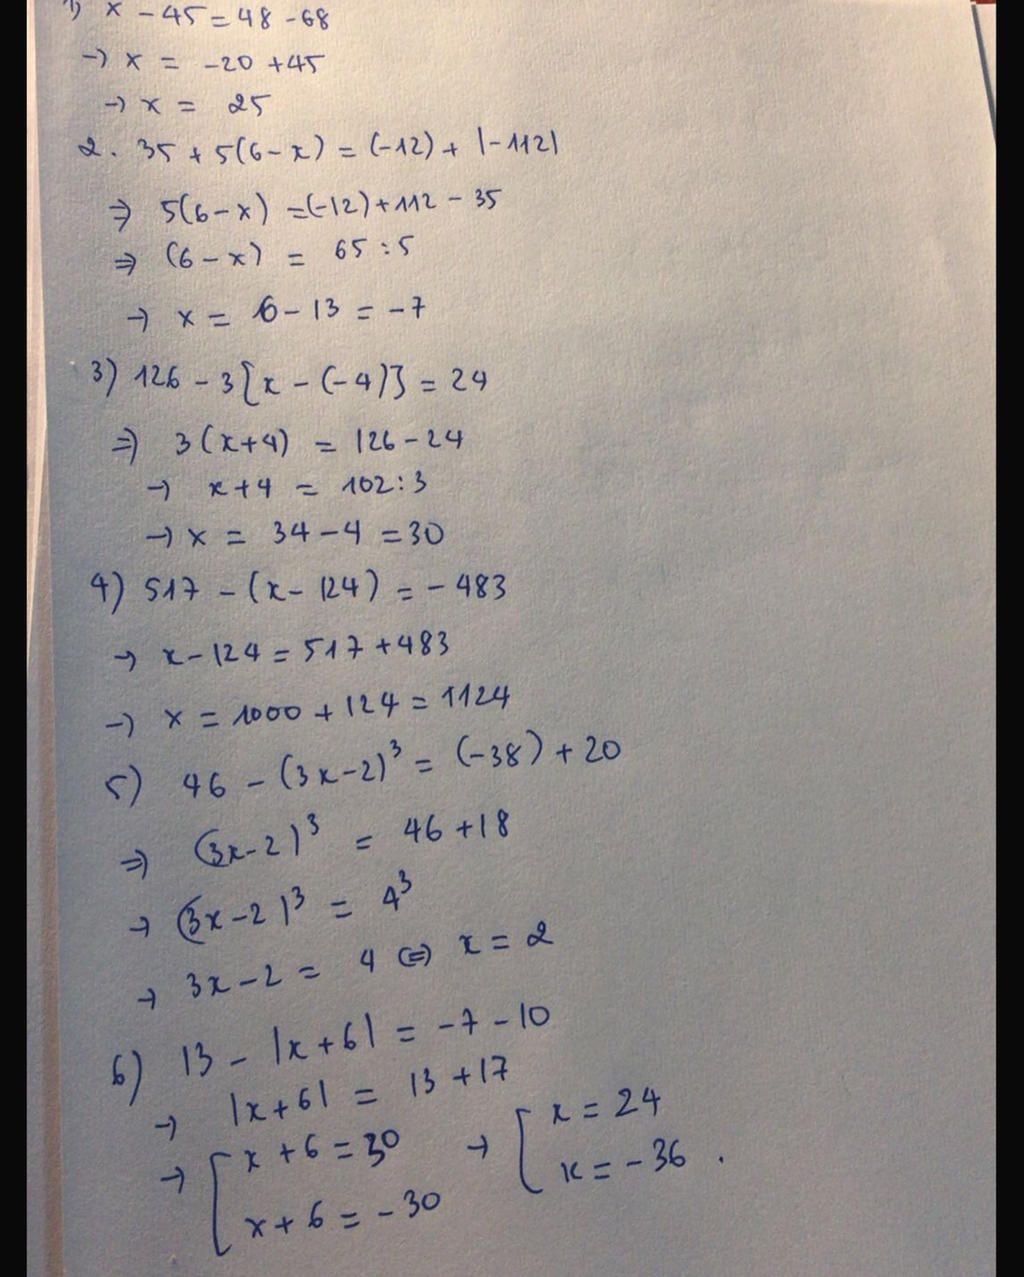 1) x - 45 = 48 - 68
→ x = -20 + 45
→ x = 25
2. 35 + 5(6 - x) = (-12) + |-112|
⇒ 5(6 - x) = (-12) + 112 - 35
⇒ (6 - x) = 65 : 5
→ x = 6 - 13 = -7
3) 126 - 3[x - (-4)] = 24
⇒ 3(x+4) = 126 - 24
→ x + 4 = 102 : 3
→ x = 34 - 4 = 30
4) 517 - (x - 124) = - 483
→ x - 124 = 517 + 483
→ x = 1000 + 124 = 1124
5) 46 - (3x - 2)³ = (-38) + 20
⇒ (3x - 2)³ = 46 + 18
→ (3x - 2)³ = 4³
→ 3x - 2 = 4 ⇔ x = 2
6) 13 - |x + 6| = -7 - 10
→ |x + 6| = 13 + 17
→ [ x + 6 = 30 → [ x = 24
x + 6 = - 30 x = - 36 .